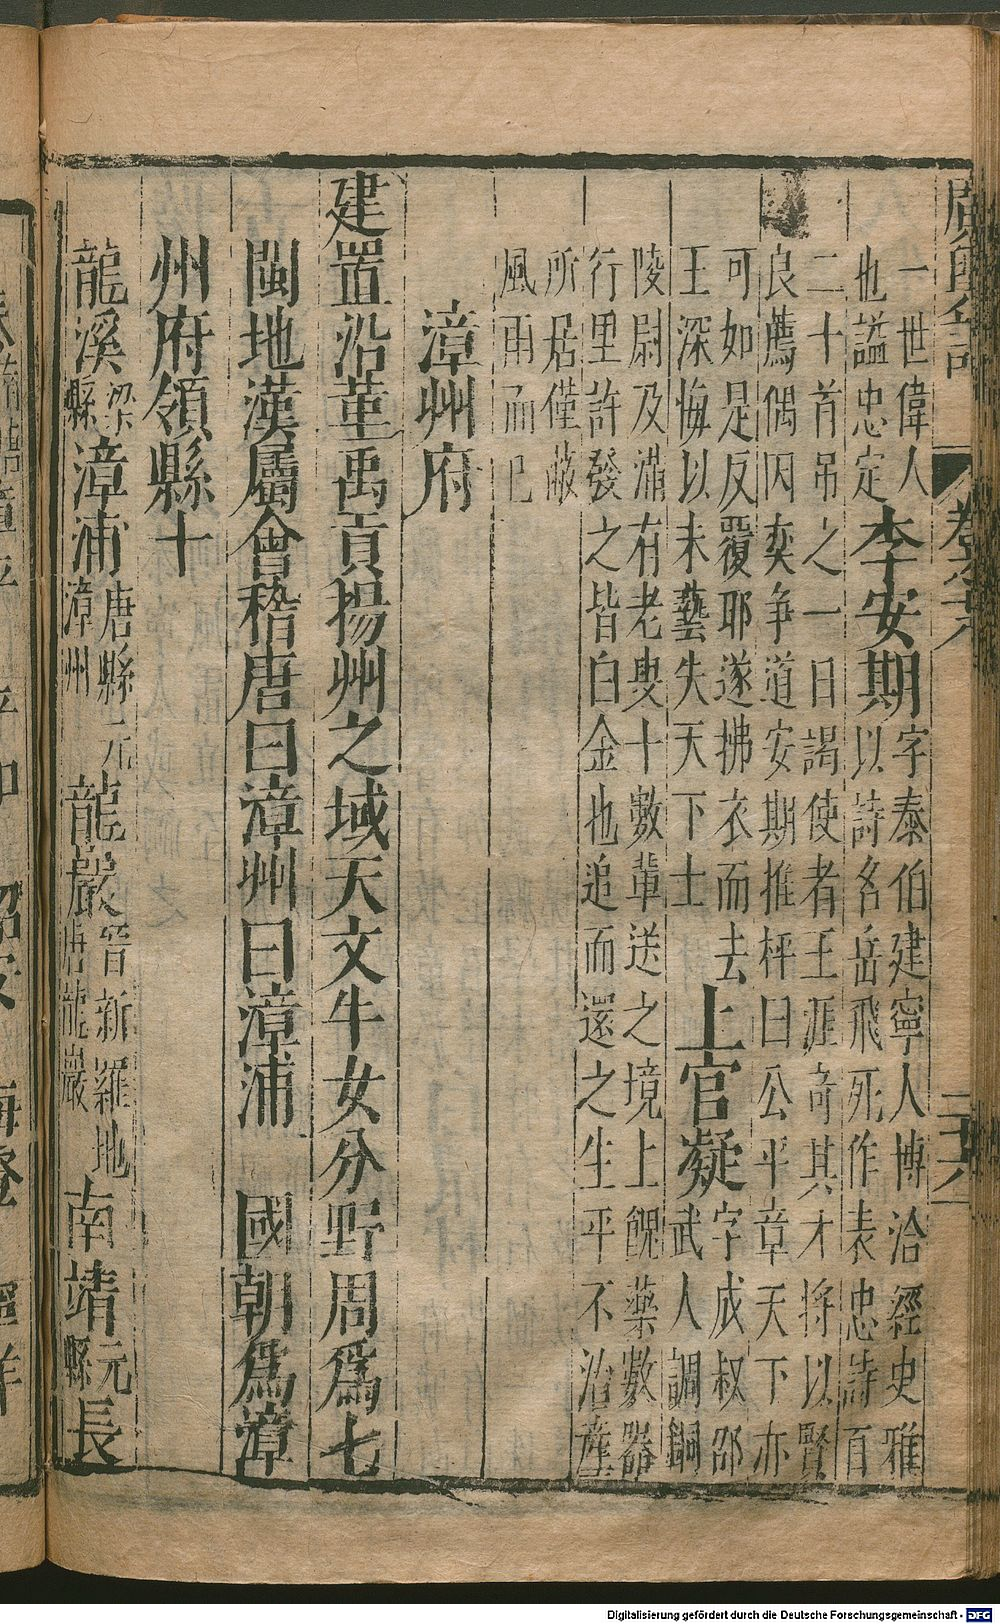 一世偉人李安期字泰伯建寧人博洽經史雅
也謚忠定以詩名岳飛死作表忠詩百
二十首吊之一日謁使者王涯奇其才将以賢
良薦偶因奕争道安期推枰曰公平章天下亦
可如是反覆耶遂拂衣而去上官凝字成叔邵
王深悔以未藝失天下士武人調銅
陵尉及滿有老叟十數輩送之境上餽藥數器
行里許發之皆白金也追而還之生平不治產
所居僅蔽
風雨而已
漳州府
建置沿革禹貢揚州之域天文牛女分野周爲七
閩地漢屬會稽唐曰漳州曰漳浦 國朝爲漳
州府領縣十
龍溪梁縣漳浦唐縣元漳州龍巖晉新羅地唐龍巖南靖元縣長
Digitalisierung gefördert durch die Deutsche Forschungsgemeinschaft - DFG